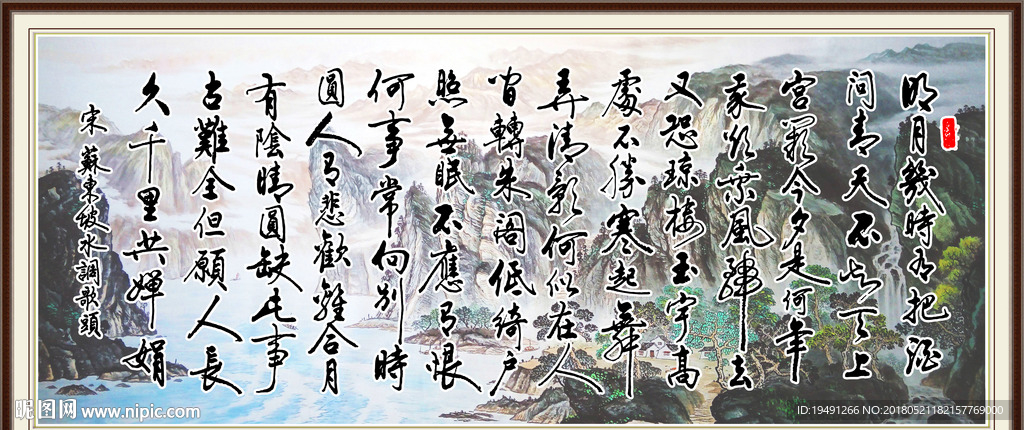 明月幾時有把酒
問青天不知天上
宮闕今夕是何年
我欲乘風歸去
又恐琼楼玉宇高
處不勝寒起舞
弄清影何似在人
間轉朱閣低綺户
照無眠不應有恨
何事常向别時
圓人有悲歡離合月
有陰晴圓缺此事
古難全但願人長
久千里共嬋娟
宋 蘇東坡水調歌頭
昵图网 www.nipic.com
ID:19491266 NO:20180521182157769000